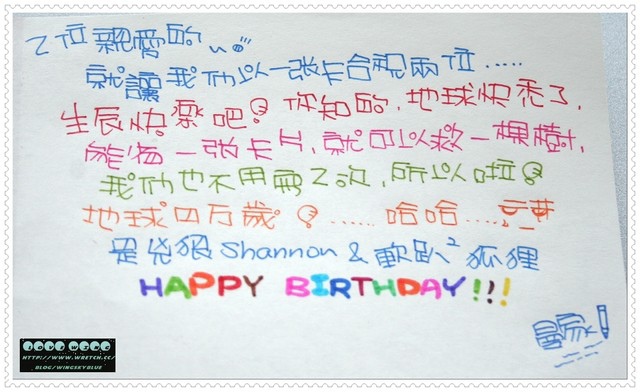 乙位親愛的~
就讓我们以一張卡合祝兩位.....
生辰快樂吧! 你知的, 地球快禿了,
能省一張卡片, 就可以救一棵樹,
我们也不用寫乙次, 所以啦!
地球四万歲! ...... 哈哈....
是 狠 Shannon & 軟趴² 狐狸
HAPPY BIRTHDAY!!!
HTTP://WWW.WRETCH.CC/
BLOG/WINGSKYBLUE